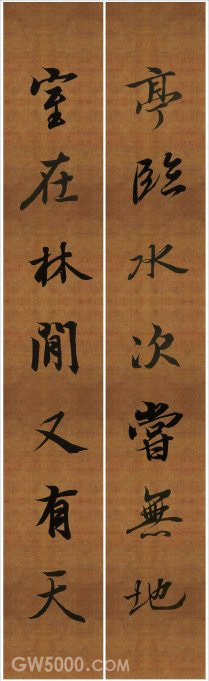 亭臨水次嘗無地
室在林間又有天
GW5000.com